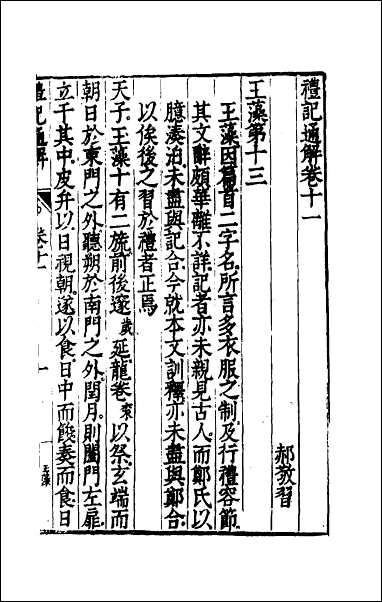 禮記通解卷十一
郝敬習
王藻第十三
王藻因篇首二字名所言多衣服之制及行禮容節
其文辭頗華離不詳記者亦未親見古人而鄭氏以
臆湊泊未盡與記合今就本文訓釋亦未盡與鄭合
以俟後之習於禮者正焉
天子王藻十有二旒前後邃歲延龍卷衮以祭玄端而
朝日於東門之外聽朔於南門之外閏月則闔門左扉
立于其中皮弁以日視朝遂以食日中而餕奏而食日
禮記通解 卷十一 一 玉藻